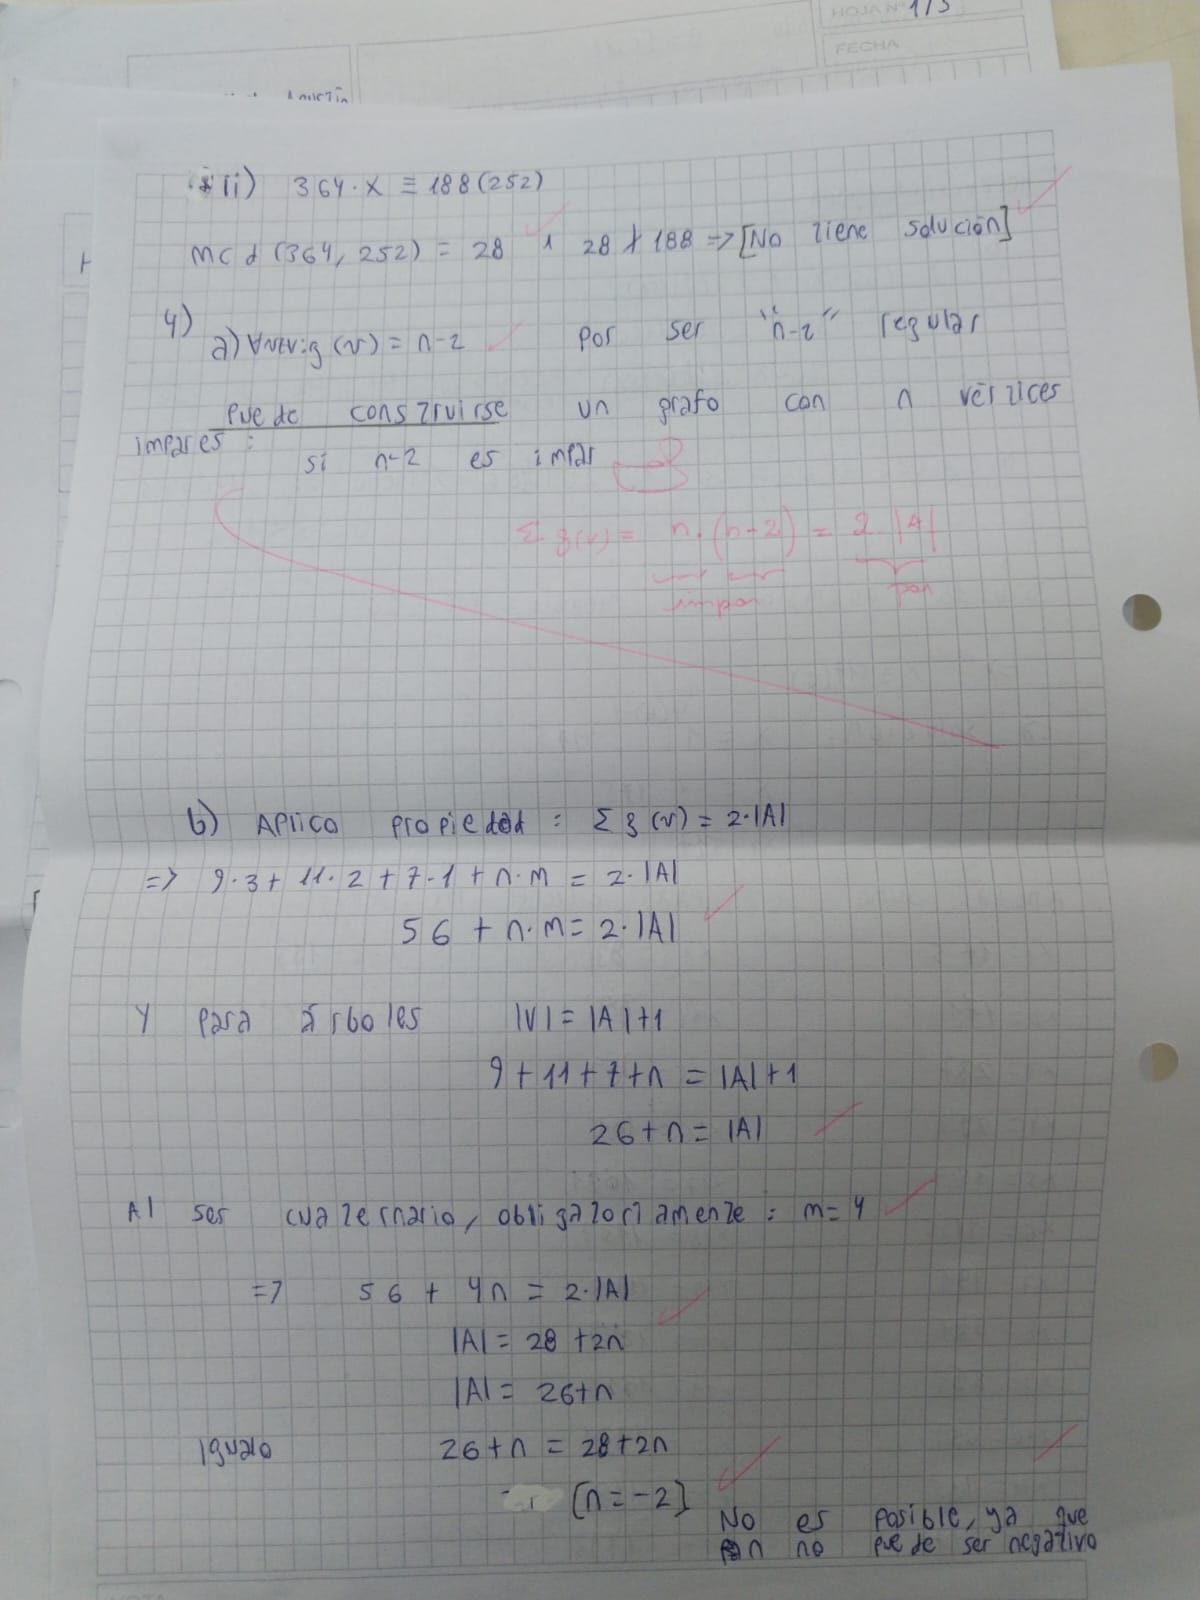 HOJA Nº 1/3
FECHA
ii) 364·X ≡ 188 (252)
mcd (364, 252) = 28 ∧ 28 ∤ 188 => [No tiene solución]
4)
a) ∀v∈V: g(v) = n-2 por ser "n-2" regular
puede construirse un grafo con n vértices
impares:
si n-2 es impar
Σ g(v) = n·(n-2) = 2·|A|
impar par
b) Aplico propiedad: Σ g(v) = 2·|A|
=> 9·3 + 11·2 + 7·1 + n·m = 2·|A|
56 + n·m = 2·|A|
Y para árboles |V| = |A|+1
9+11+7+n = |A|+1
26+n = |A|
Al ser cuaternario, obligatoriamente: m=4
=> 56 + 4n = 2·|A|
|A| = 28 + 2n
|A| = 26+n
Igualo 26+n = 28+2n
[n = -2]
No es posible, ya que
n no puede ser negativo